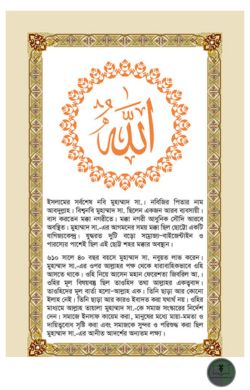 الله
ইসলামের সর্বশেষ নবি মুহাম্মাদ সা.। নবিজির পিতার নাম
আবদুল্লাহ। বিশ্বনবি মুহাম্মাদ সা. ছিলেন একজন আরব ব্যবসায়ী।
বাস করতেন মক্কা নগরীতে। মক্কা নগরী আধুনিক সৌদি আরবে
অবস্থিত। মুহাম্মাদ সা.-এর আগমনের সময় মক্কা ছিল ছোট্টো একটি
বাণিজ্যকেন্দ্র। যুদ্ধরত দুটি বড়ো সাম্রাজ্য-বাইজেন্টাইন ও
পারস্যের পাশেই ছিল এই ছোট্ট শহর মক্কার অবস্থান।
৬১০ সালে ৪০ বছর বয়সে মুহাম্মাদ সা. নবুয়ত লাভ করেন।
মুহাম্মাদ সা.-এর ওপর আল্লাহর পক্ষ থেকে ধারাবাহিকভাবে ওহি
আসতে থাকে। ওহি নিয়ে আসেন মহান ফেরেশতা জিবরিল আ.।
ওহির মূল বিষয়বস্তু ছিল তাওহিদ তথা আল্লাহর একত্ববাদ।
তাওহিদের মূল বার্তা হলো-আল্লাহ এক। তিনি ছাড়া আর কোনো
ইলাহ নেই। তিনি ছাড়া আর কারও ইবাদত করা যথার্থ নয়। ওহির
মাধ্যমে আল্লাহ তায়ালা মুহাম্মাদ সা.-কে সমাজ সংস্কারের নির্দেশ
দেন। সমাজে ইনসাফ কায়েম করা, মানুষের মধ্যে মায়া-মমতা ও
দায়িত্ববোধ সৃষ্টি করা এবং সমাজকে সুন্দর ও পরিশুদ্ধ করা ছিল
মুহাম্মাদ সা.-এর আনীত আদর্শের অন্যতম লক্ষ্য।